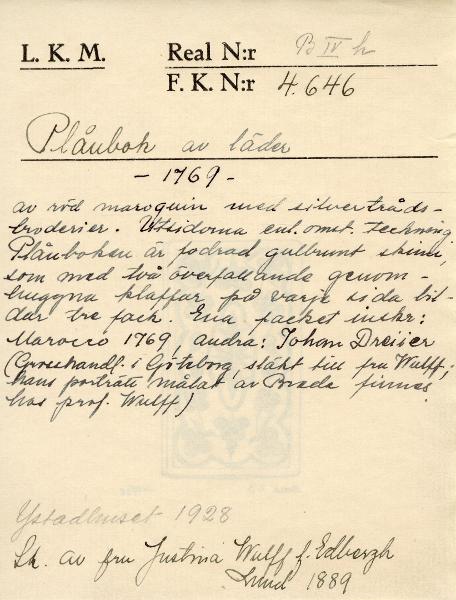 L. K. M.
Real N:r B IV h
F. K. N:r 4.646
Plånbok av läder
- 1769 -
av röd maroquin med silvertråds-
broderier. Utsidorna enl. omst. teckning
Plånboken är fodrad gulbrunt skinn,
som med två överfallande genom-
huggna klaffar, på varje sida bil-
dar tre fack. Ena facket inskr:
Marocco 1769, andra: Johan Dreijer
(Grosshandl. i Göteborg, släkt till fru Wulff;
hans porträtt målat av Breda finnes
hos prof. Wulff)
Ystadhuset 1928
Sk. av fru Justina Wulff f. Edbergh
Lund 1889